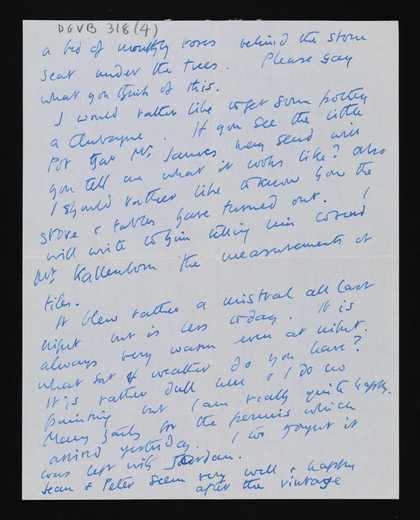 DGVB 318 (4)
a bed of monthly roses behind the stone
seat under the trees. Please say
what you think of this.
I would rather like to get some pottery
a Aubagne. If you see the little
pot that Mr. James may send will
you tell me what it looks like? also
I should rather like to know how the
stove & tables have turned out. I
will write to him telling him to send
Mr. Kallenborn the measurements of
tiles.
It blew rather a mistral all last
night but is less today. It is
always very warm even at night.
What sort of weather do you have?
It is rather dull here & I do no
painting but I am really quite happy.
Many thanks for the permis which
arrived yesterday. I too bought it
was left with Jourdan.
Jean & Peter seem very well & happy
after the vintage